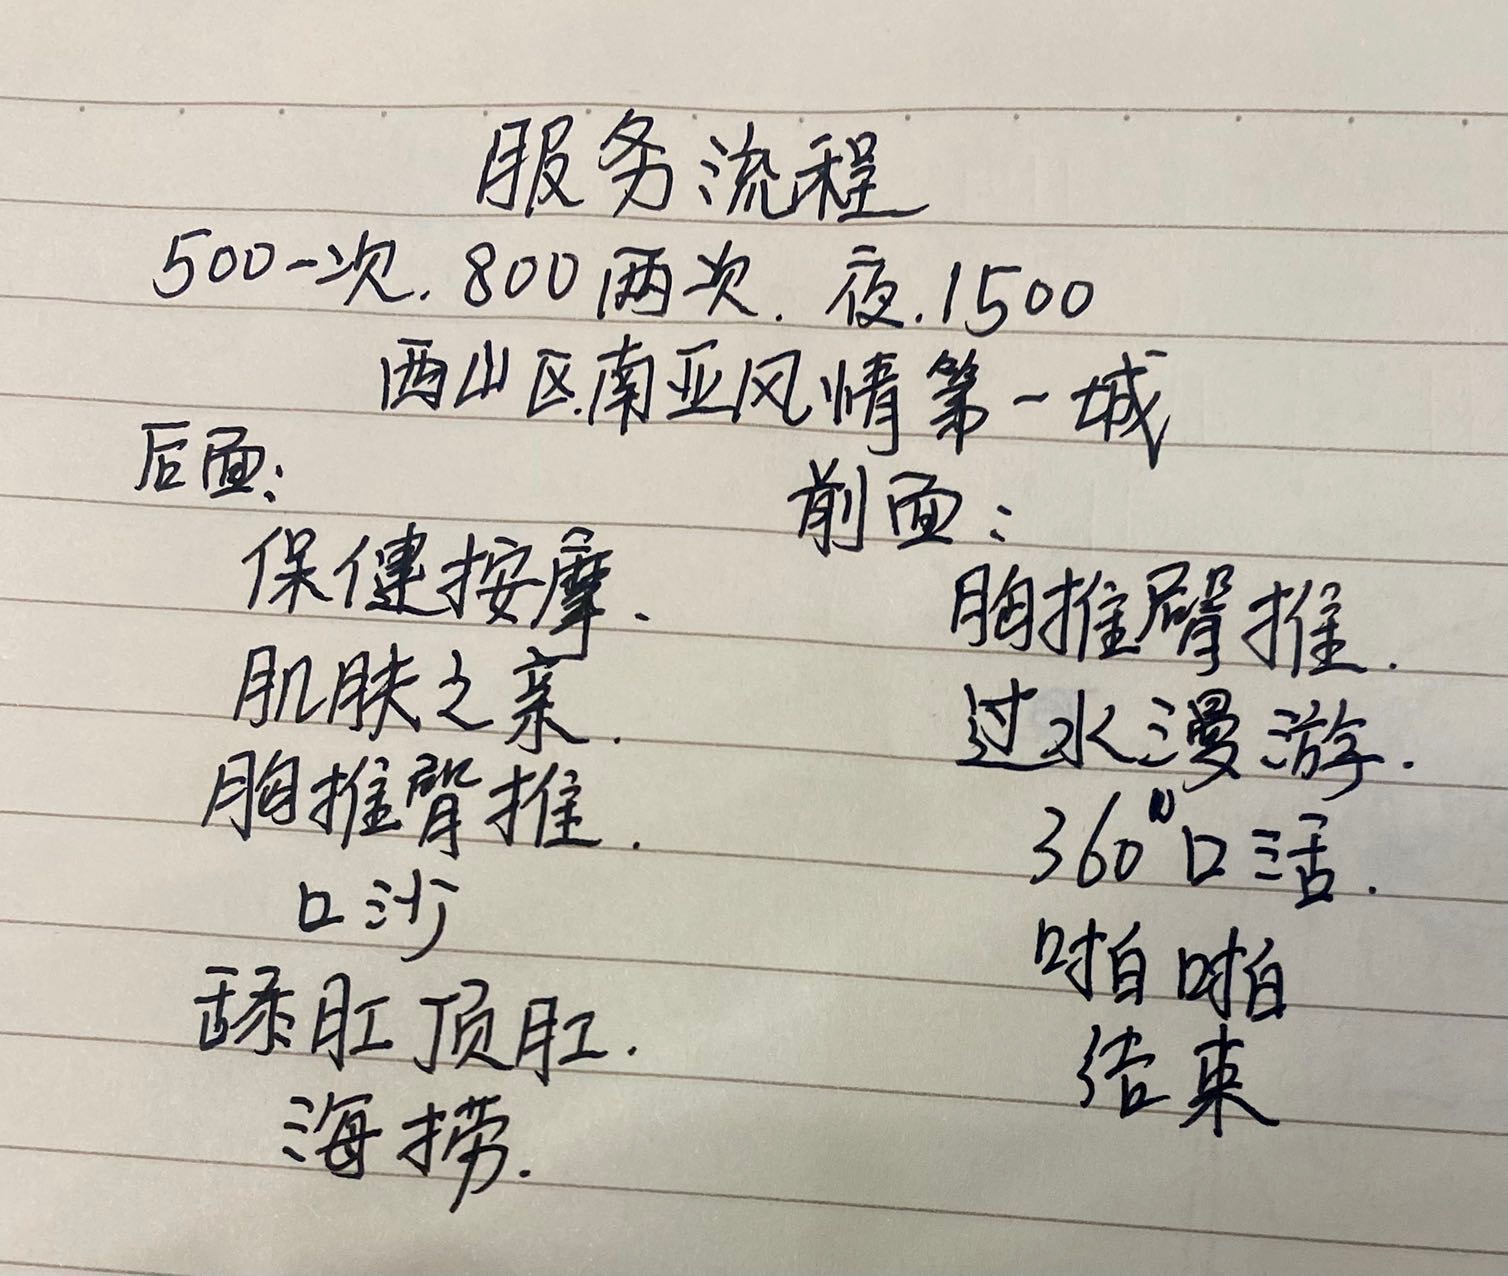 服务流程
500一次.800两次.夜.1500
西山区.南亚风情第一城
后面:
保健按摩.
肌肤之亲.
胸推臀推.
口沙
舔肛顶肛.
海捞.
前面:
胸推臀推.
过水漫游.
360°口活.
啪啪
结束